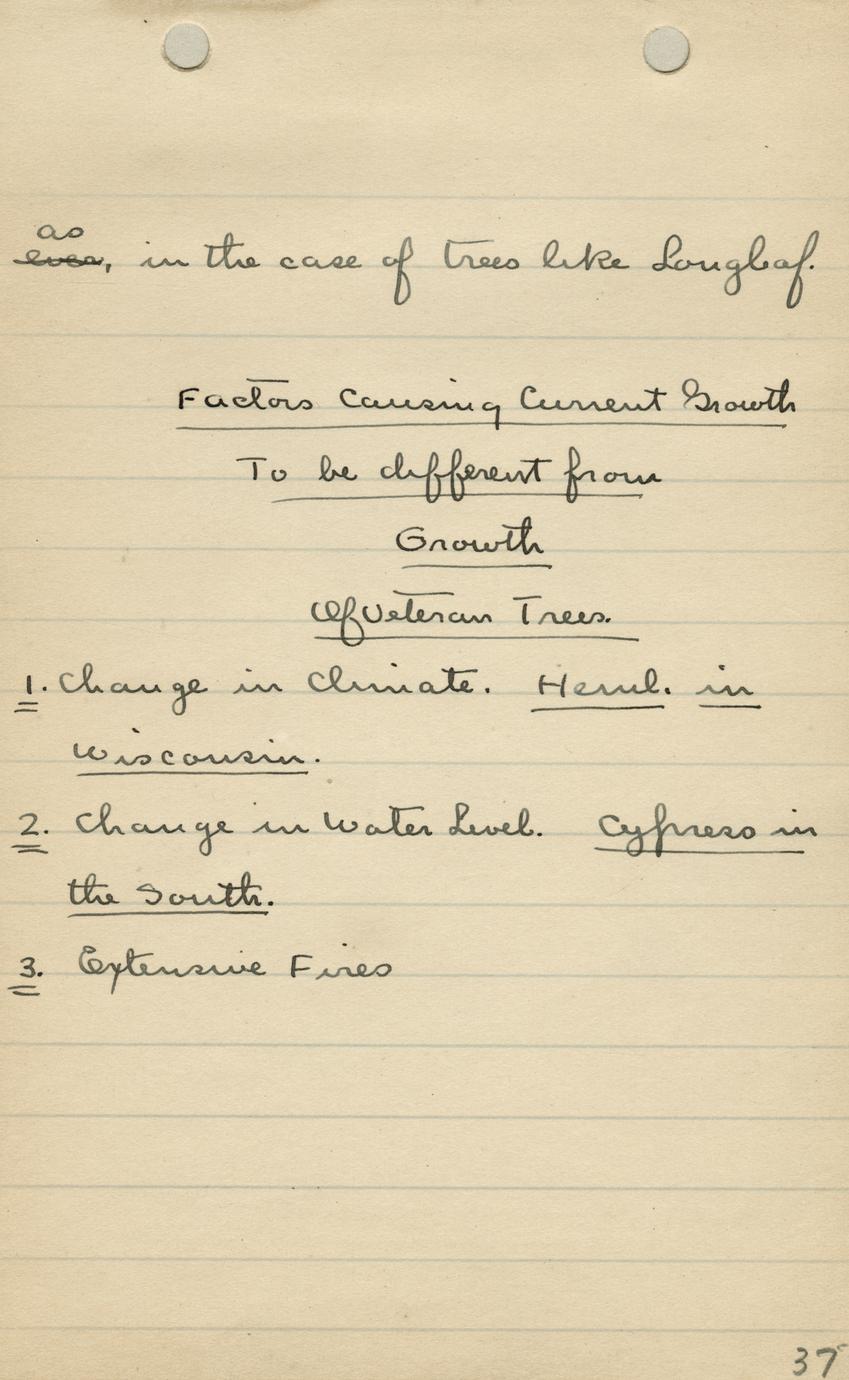 as
ever, in the case of trees like Longleaf.
Factors Causing Current Growth
To be different from
Growth
Of Veteran Trees.
1. Change in Climate. Heml. in
Wisconsin.
2. Change in Water Level. Cypress in
the South.
3. Extensive Fires
37